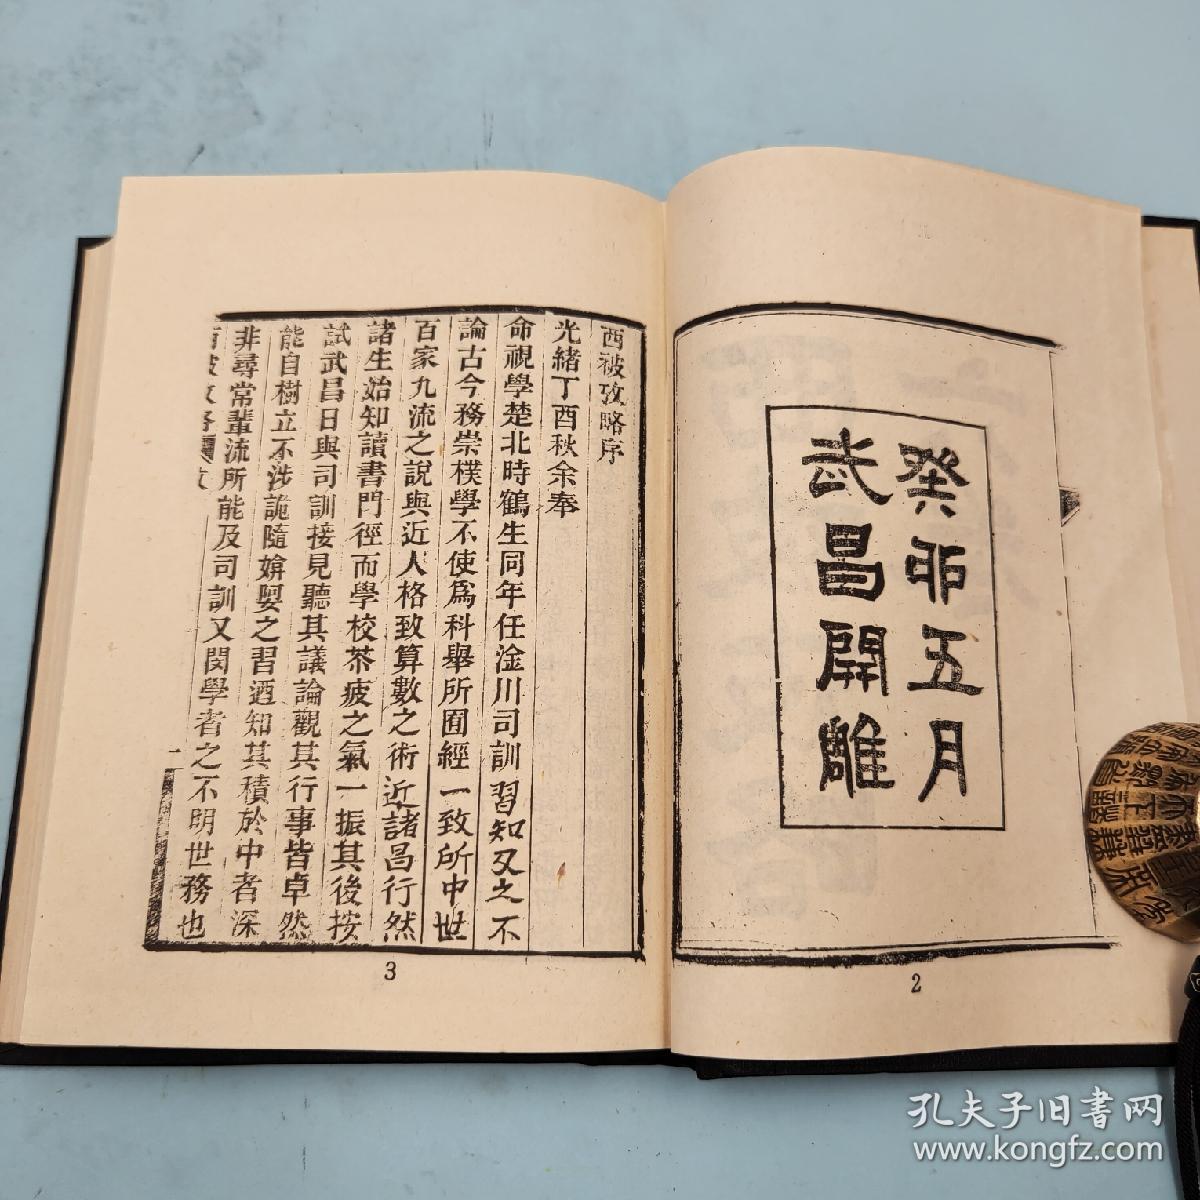 癸卯五月
武昌開雕
2
西被攷略序
光緒丁酉秋余奉
命視學楚北時鶴生同年任淦川司訓習知又之不
論古今務崇樸學不使爲科舉所囿經一致所中世
百家九流之說與近人格致算數之術近諸昌行然
諸生始知讀書門徑而學校茶疲之氣一振其後按
試武昌日與司訓接見聽其議論觀其行事皆卓然
能自樹立不涉詭隨媕娿之習迺知其積於中者深
非尋常輩流所能及司訓又閔學者之不明世務也
一
3
孔夫子旧書网
www.kongfz.com